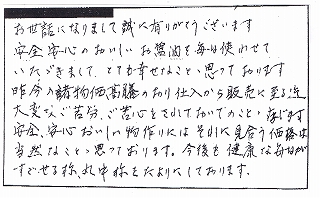 お世話になりまして誠に有りがとうございます
安全安心のおいしいお醤油を毎日使わせて
いただきまして、とても幸せなこと思っております
昨今の諸物価高騰のおり仕入から販売に至る迄
大変なご苦労、ご苦心をされておいでのことと存じます
安全、安心おいしい物作りにはそれに見合う価格は
当然なことと思っております。今後も健康な毎日が
すごせる様、丸中様をたよりにしております.